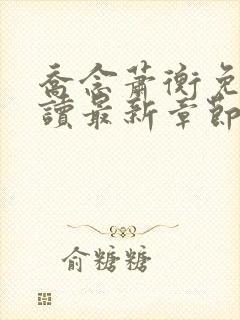 喬念蕭衡免
讀最新章節
俞糖糖